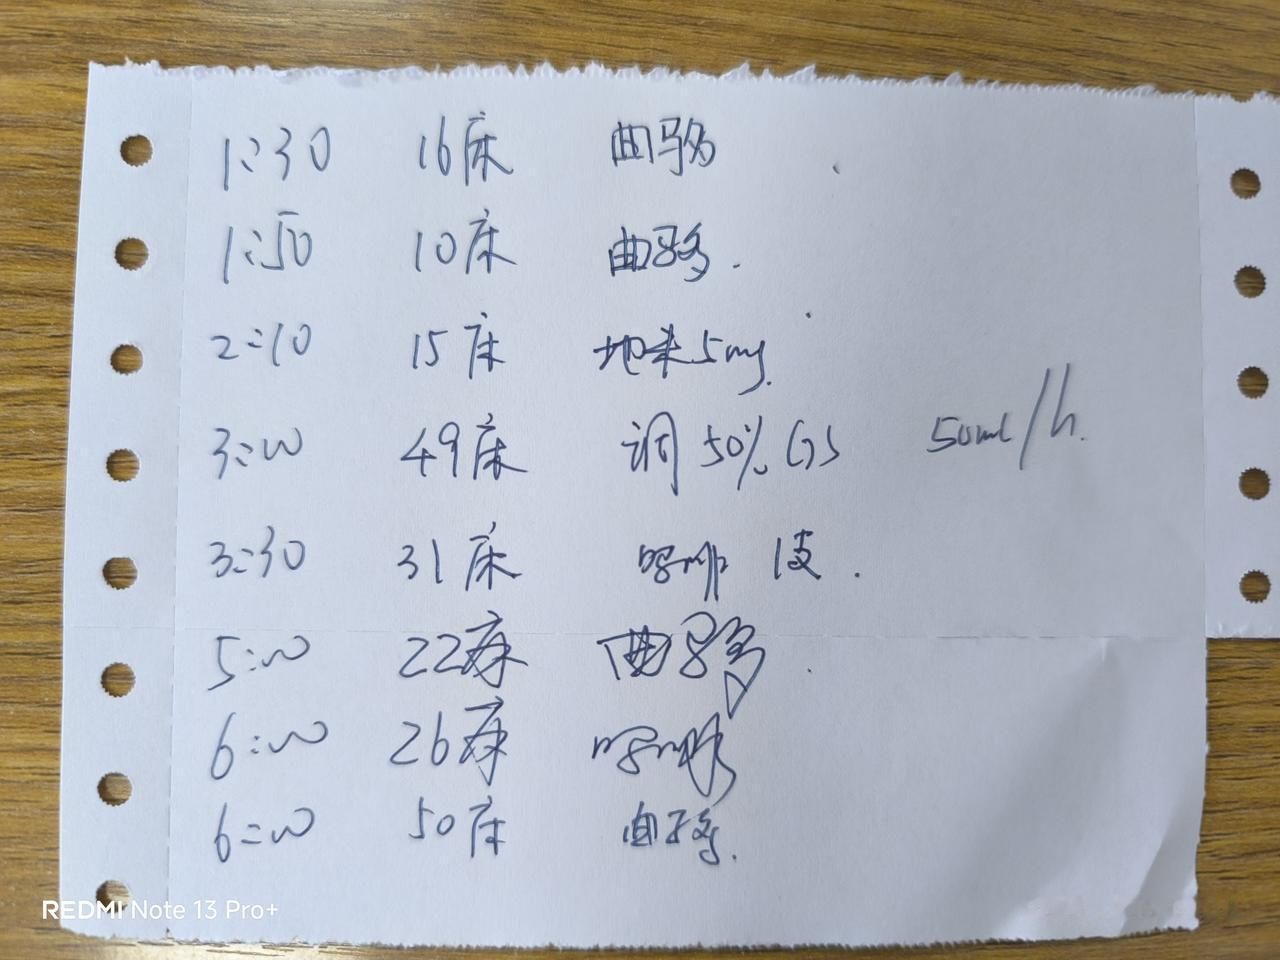 1:30 16床 曲马多
1:50 10床 曲马多.
2:10 15床 地米5mg.
3:00 49床 调50%GS 50ml/h.
3:30 31床 吗啡 1支.
5:00 22床 曲马多.
6:00 26床 吗啡
6:00 50床 曲马多.
REDMI Note 13 Pro+